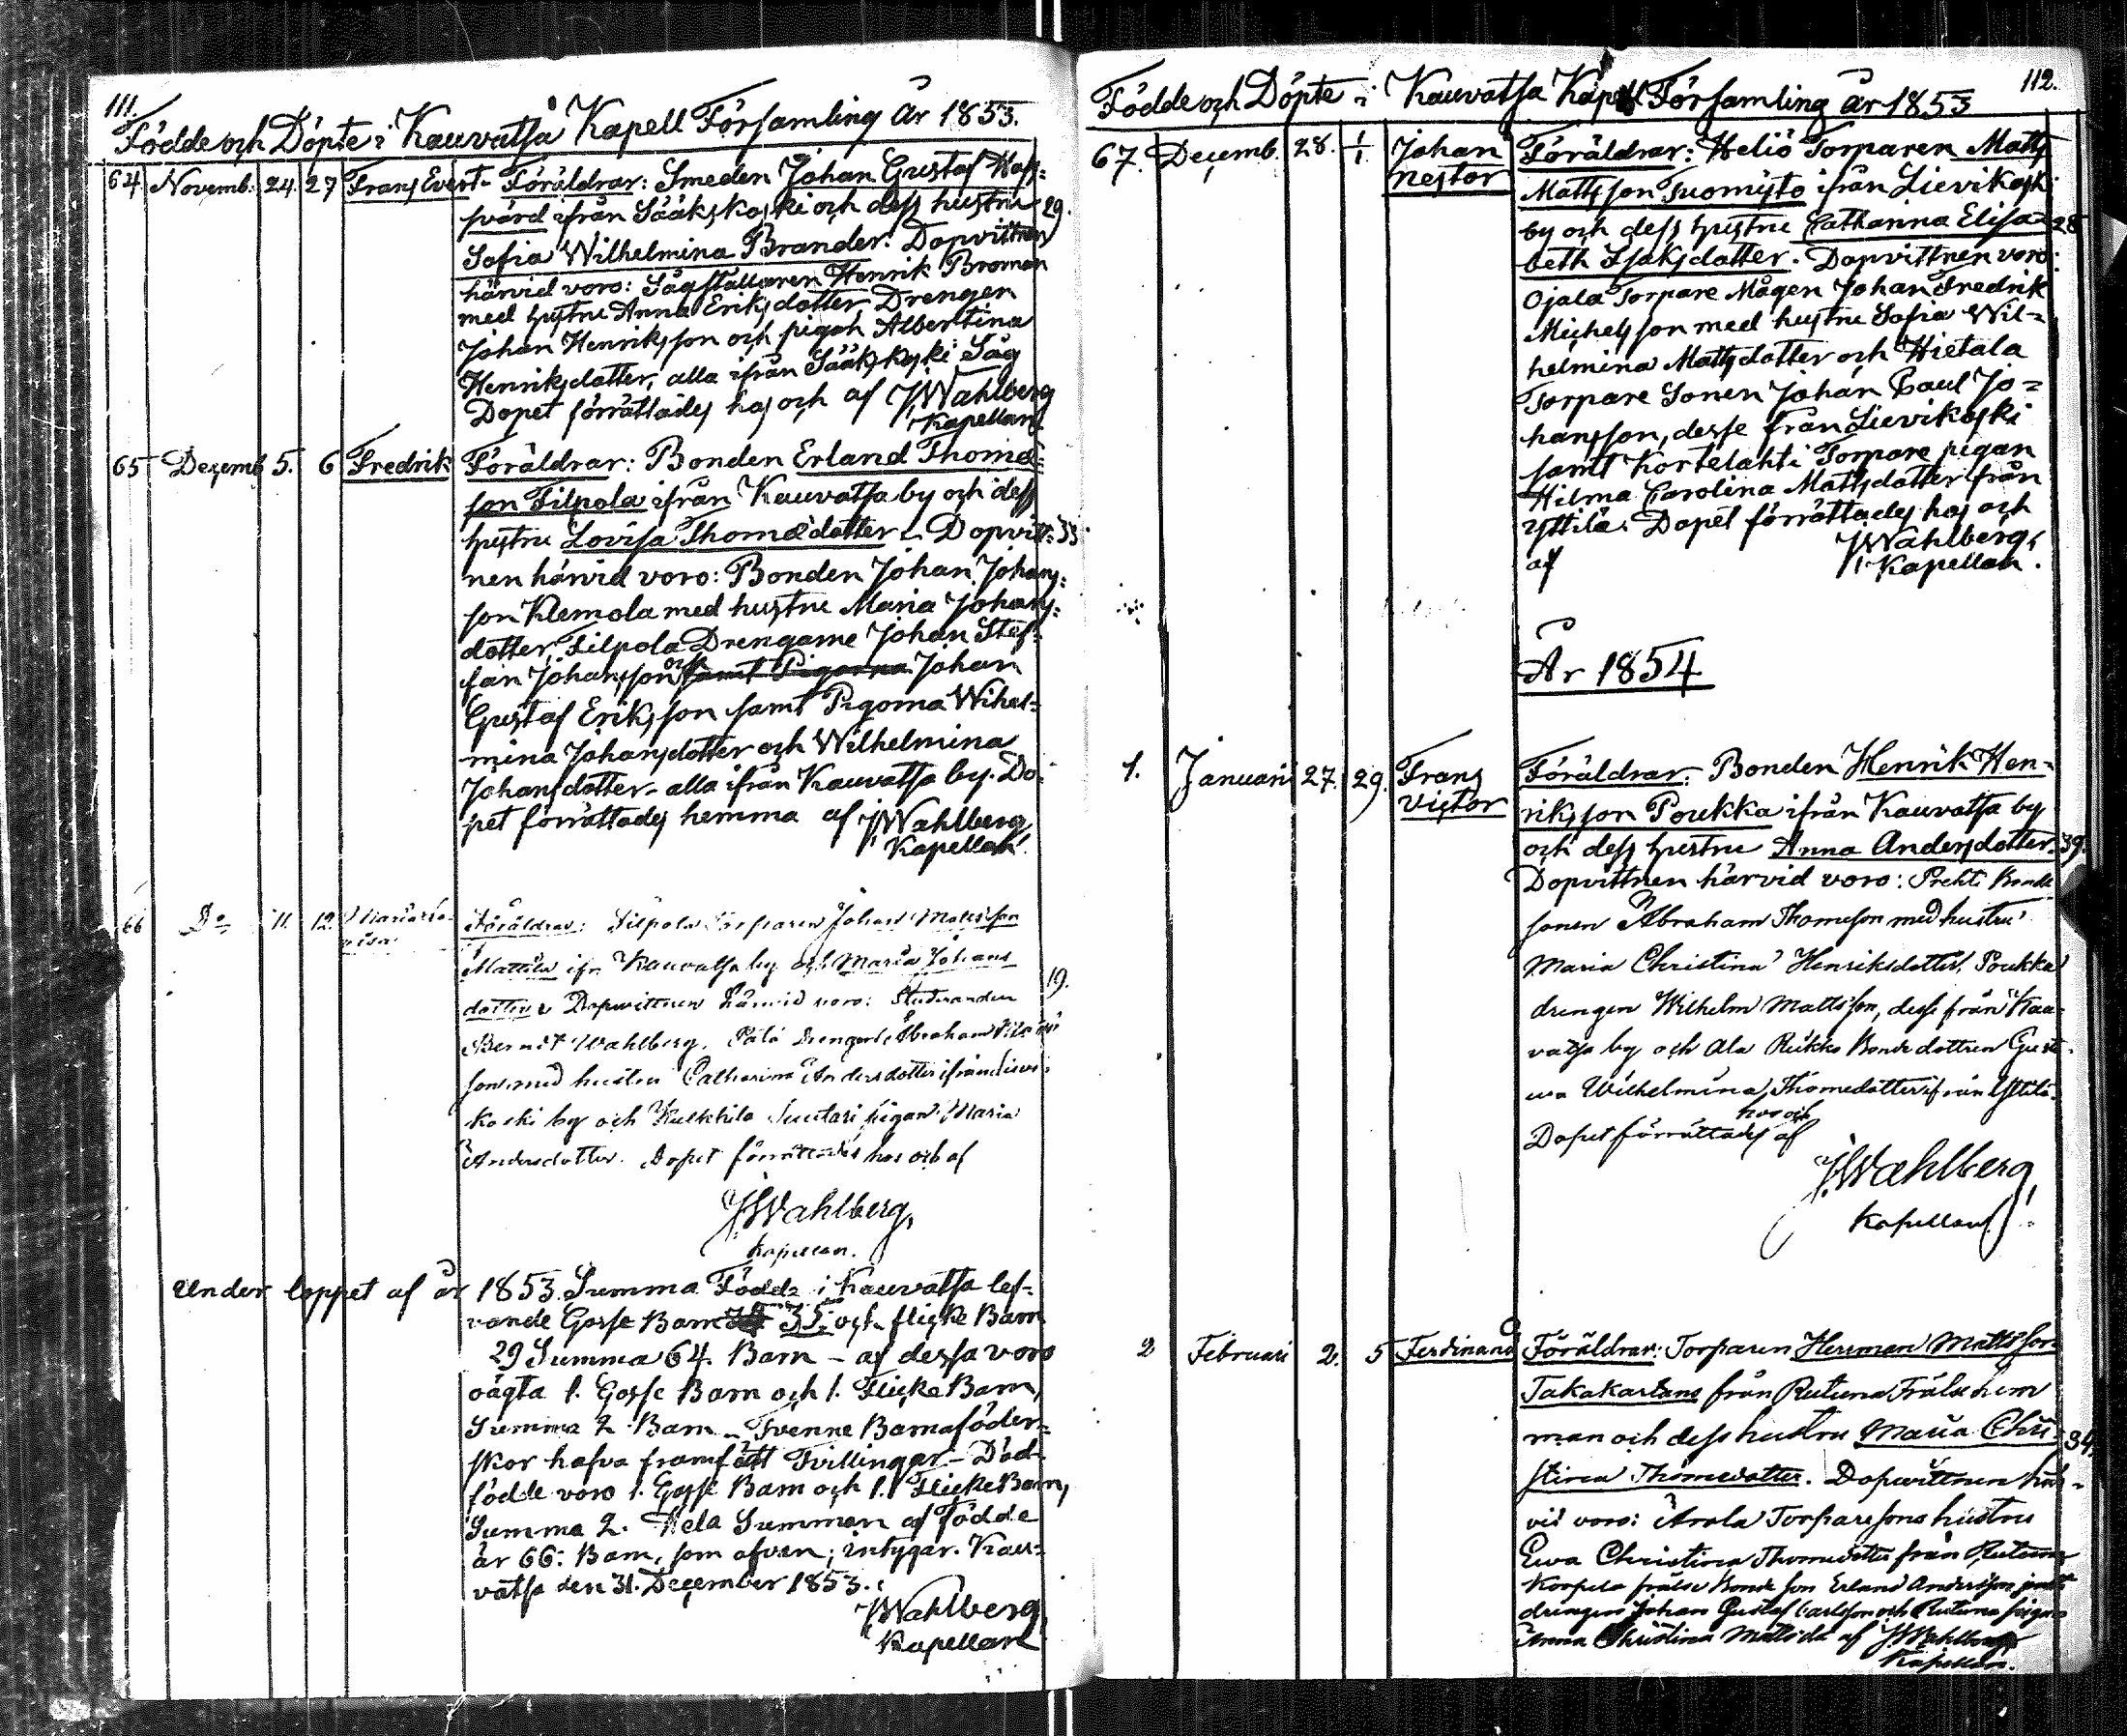 111.
Födde och Döpte i Kauvatsa Kapell Församling År 1853.
64 Novemb. 24. 27 Frans Evert. Föräldrar: Smeden Johan Gustaf Haf=
svärd ifrån Sääkskoski och dess hustru 29.
Sofia Wilhelmina Brander. Dopvittnen
härvid voro: Sågställaren Henrik Broman
med hustru Anna Eriksdotter, Drengen
Johan Henriksson och pigan Albertina
Henriksdotter, alla ifrån Sääkskoski Såg
Dopet förrättades hos och af JWahlberg
Kapellan
65 Dezemb 5. 6 Fredrik Föräldrar: Bonden Erland Thomæ=
son Filpola ifrån Kauvatsa by och dess
hustru Lovisa Thomædotter – Dopvitt= 33
nen härvid voro: Bonden Johan Johans=
son Klemola med hustru Maria Johans=
dotter, Filpola Drengarne Johan Stef=
fan Johansson och samt Pigorna Johan
Gustaf Eriksson samt Pigorna Wihel=
mina Johansdotter och Wilhelmina
Johansdotter – alla ifrån Kauvatsa by. Do=
pet förrättades hemma af JWahlberg
Kapellan.
66 Do 11. 12. Maria Lo=
visa Föräldrar: Filpola Torparen Johan Matts son
Mattila ifr. Kauvatsa by och Maria Johans
dotter Dopvittnen härvid voro: Studeranden 19.
Berndt Wahlberg, Drengen Abraham
son med hustru Catharina Andersdotter ifrån Lievi=
koski by och Kulkkila Suutari pigan Maria
Andersdotter. Dopet förrättades hos och af
JWahlberg,
Kapellan.
Under loppet af år 1853 Summa Födde i Kauvatsa lef=
vande Gosse Barn 35. och flicke Barn
29 Summa 64. Barn – af dessa voro
oägta 1. Gosse Barn och 1. Flicke Barn,
Summa 2 Barn – Tvenne Barnaföder=
skor hafva framfött Tvillingar – Död=
födde voro 1. Gosse Barn och 1. Flicke Barn,
Summa 2. Hela Summan af Födde
är 66: Barn, som ofvan; intygar. Kau=
vatsa den 31. December 1853.
JWahlberg
Kapellan
112.
Födde och Döpte i Kauvatsa Kapell Församling år 1853
67. Decemb. 28. 1/1 Johan
Nestor Föräldrar: Heliö Torparen Matts
Mattsson Tuomisto ifrån Lievikoski
by och dess hustru Catharina Elisa= 28
beth Isaksdotter. Dopvittnen voro:
Ojala Torpare Mågen Johan Fredrik
Michelsson med hustru Sofia Wil=
helmina Mattsdotter och Hietala
Torpare Sonen Johan Paul Jo=
hansson, desse från Lievikoski
samt Kortelahti Torpare pigan
Hilma Carolina Mattsdotter från
Yttilä. Dopet förrättades hos och
af JWahlberg,
Kapellan.
År 1854
1. Januari 27. 29. Frans
Victor Föräldrar: Bonden Henrik Hen=
riksson Poukka ifrån Kauvatsa by
och dess hustru Anna Andersdotter. 39.
Dopvittnen härvid voro: Prehti Bonde
sonen Abraham Thomeson med hustru
Maria Christina Henriksdotter, Poukka
drengen Wilhelm Mattsson, desse från Kau=
vatsa by och Ala Rükko Bonde dottren Gusta=
va Wilhelmina Thomedotter ifrån Yttilä.
Dopet förrättades hos och af
JWahlberg,
Kapellan.
2 Februari 2. 5 Ferdinand Föräldrar: Torparen Herman Matts son
Takakartano från Rutuna Frälse hem
man och dess hustru Maria Chri= 34.
stina Thomedotter. Dopvittnen här=
vid voro: Arola Torparesons hustru
Ewa Christina Thomedotter från Rutuna
Korpela frälse Bonde son Erland Andersson jemte
drengen Johan Gustaf Carlsson och Rutuna pigan
Anna Christina Mattsdr af JWahlberg
Kapellan.